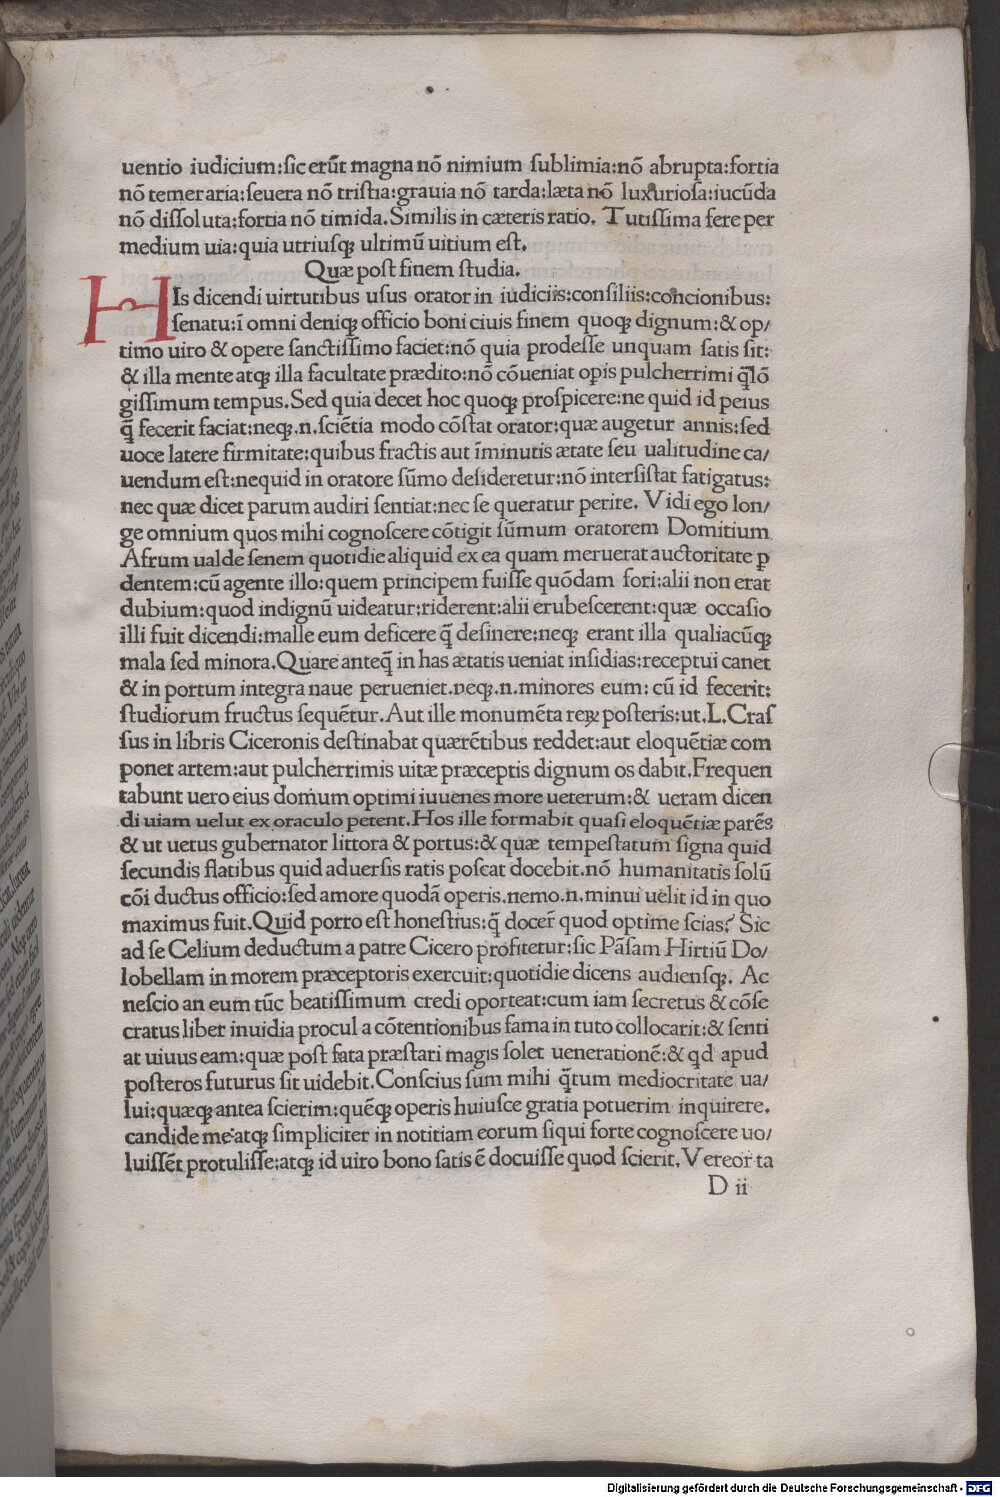 uentio iudicium:sic erũt magna nõ nimium sublimia:nõ abrupta:fortia
nõ temeraria:seuera nõ tristia:grauia nõ tarda:læta nõ luxuriosa:iucũda
nõ dissoluta:fortia nõ timida. Similis in cæteris ratio. Tutissima fere per
medium uia:quia utriusq; ultimũ uitium est.
Quæ post finem studia.
His dicendi uirtutibus usus orator in iudiciis:consiliis:concionibus:
senatu:ĩ omni deniq; officio boni ciuis finem quoq; dignum:& op/
timo uiro & opere sanctissimo faciet:nõ quia prodesse unquam satis sit:
& illa mente atq; illa facultate prædito:nõ cõueniat opis pulcherrimi q̃lõ
gissimum tempus. Sed quia decet hoc quoq; prospicere:ne quid id peius
q̃ fecerit faciat:neq;.n.sciẽtia modo cõstat orator:quæ augetur annis:sed
uoce latere firmitate:quibus fractis aut ĩminutis ætate seu ualitudine ca/
uendum est:nequid in oratore sũmo desideretur:nõ intersistat fatigatus:
nec quæ dicet parum audiri sentiat:nec se queratur perire. Vidi ego lon/
ge omnium quos mihi cognoscere cõtigit sũmum oratorem Domitium
Afrum ualde senem quotidie aliquid ex ea quam meruerat auctoritate ꝑ
dentem:cũ agente illo:quem principem fuisse quõdam fori:alii non erat
dubium:quod indignũ uideatur:riderent:alii erubescerent:quæ occasio
illi fuit dicendi:malle eum deficere q̃ desinere:neq; erant illa qualiacũq;
mala sed minora. Quare anteq̃ in has ætatis ueniat insidias:receptui canet
& in portum integra naue perueniet.neq;.n.minores eum: cũ id fecerit:
studiorum fructus sequẽtur. Aut ille monumẽta reꝝ posteris:ut.L.Cras
sus in libris Ciceronis destinabat quærẽtibus reddet:aut eloquẽtiæ com
ponet artem:aut pulcherrimis uitæ præceptis dignum os dabit. Frequen
tabunt uero eius domum optimi iuuenes more ueterum:& ueram dicen
di uiam uelut ex oraculo petent. Hos ille formabit quasi eloquẽtiæ parẽs
& ut uetus gubernator littora & portus:& quæ tempestatum signa quid
secundis flatibus quid aduersis ratis poscat docebit.nõ humanitatis solũ
cõi ductus officio:sed amore quodã operis.nemo.n.minui uelit id in quo
maximus fuit. Quid porro est honestius:q̃ docer̃ quod optime scias? Sic
ad se Celium deductum a patre Cicero profitetur:sic Pãsam Hirtiũ Do/
lobellam in morem præceptoris exercuit:quotidie dicens audiensq;. Ac
nescio an eum tũc beatissimum credi oporteat:cum iam secretus & cõse
cratus liber inuidia procul a cõtentionibus fama in tuto collocarit:& senti
at uiuus eam:quæ post fata præstari magis solet uenerationẽ:& qd apud
posteros futurus sit uidebit. Conscius sum mihi q̃tum mediocritate ua/
lui:quæq; antea scierim:quẽq; operis huiusce gratia potuerim inquirere.
candide me:atq; simpliciter in notitiam eorum siqui forte cognoscere uo/
luissẽt protulisse:atq; id uiro bono satis ẽ docuisse quod scierit. Vereor ta
D ii
Digitalisierung gefördert durch die Deutsche Forschungsgemeinschaft - DFG